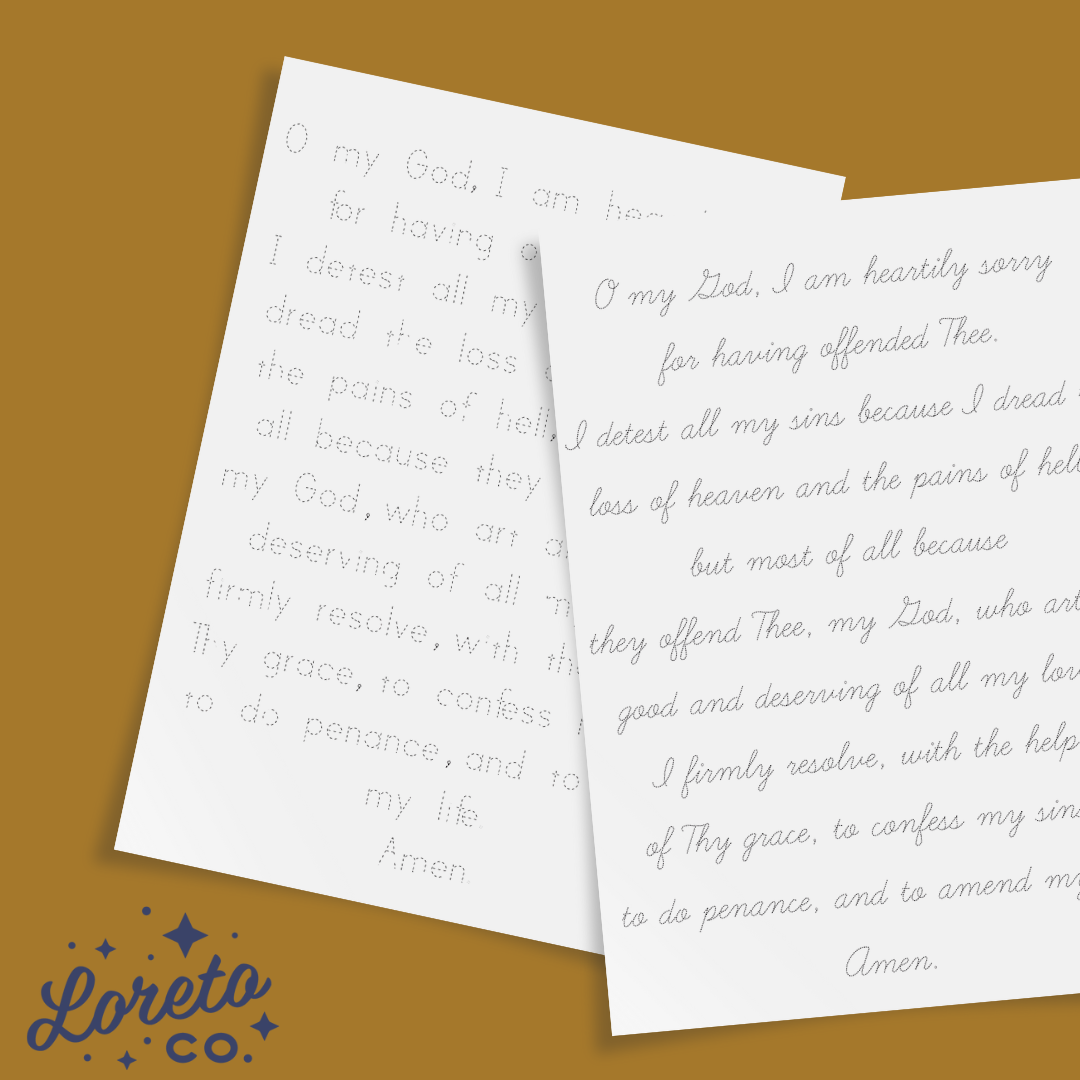 O my God, I am
for having
I detest all my
dread the loss
the pains of hell,
all because they
my God, who art
deserving of all
firmly resolve, with
Thy grace, to confess
to do penance, and to
my life.
Amen.
O my God, I am heartily sorry
for having offended Thee.
I detest all my sins because I dread
loss of heaven and the pains of hell
but most of all because
they offend Thee, my God, who art
good and deserving of all my
I firmly resolve, with the help
of Thy grace, to confess my sins
to do penance, and to amend my
Amen.
Loreto
co.